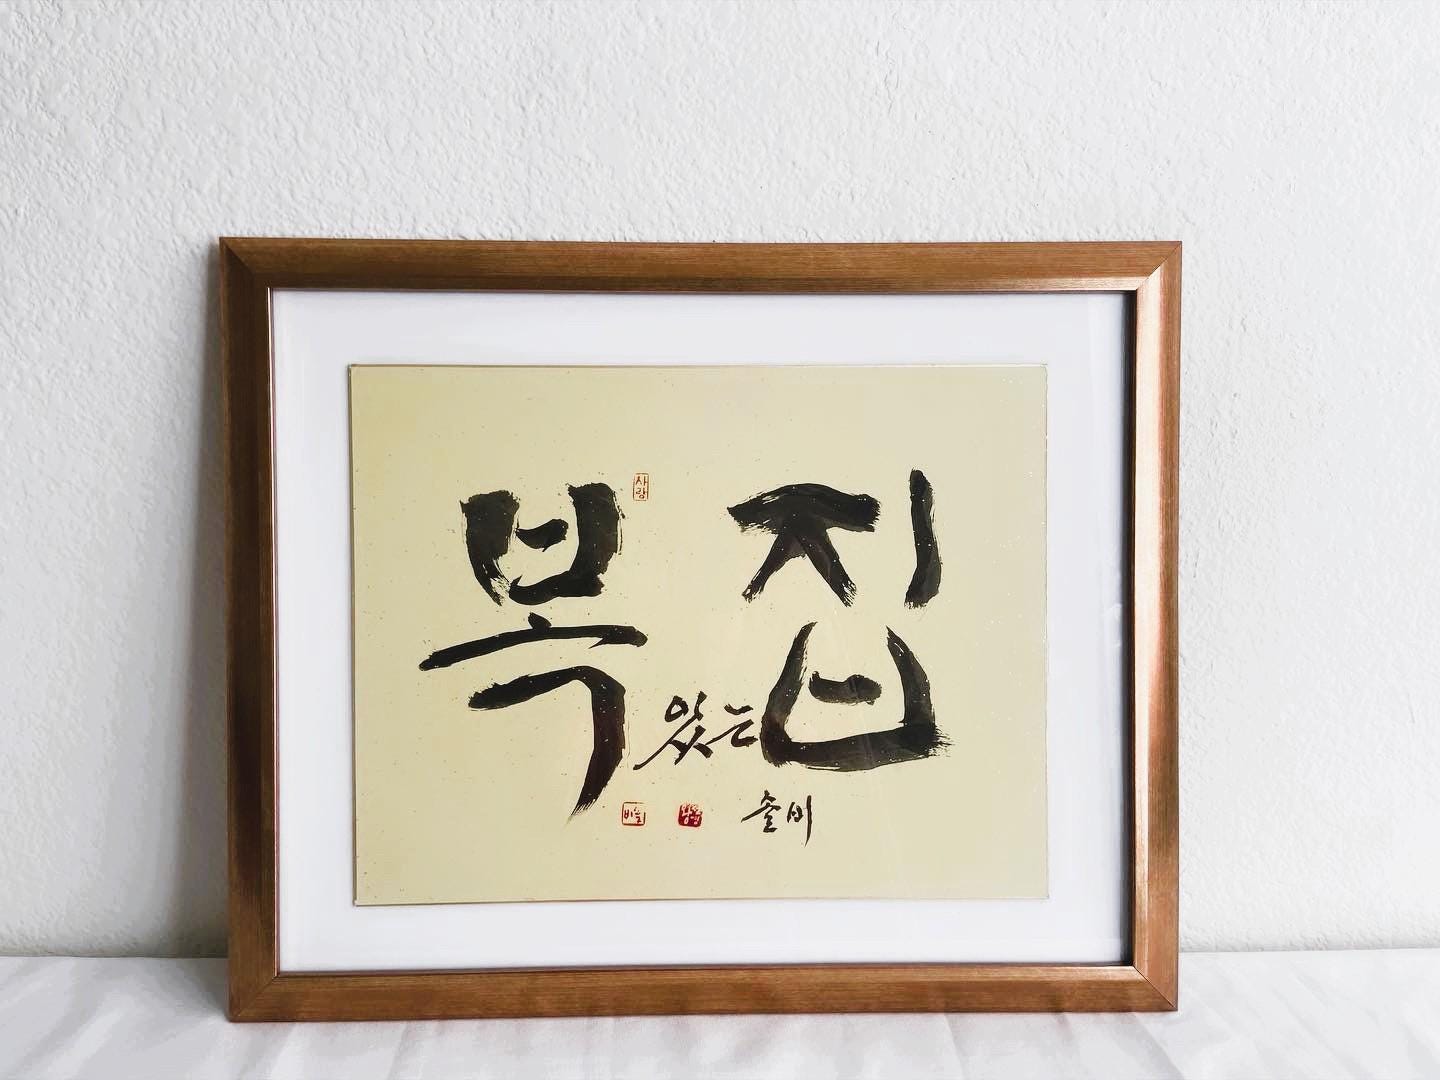 사랑
복 있는 집
솔비